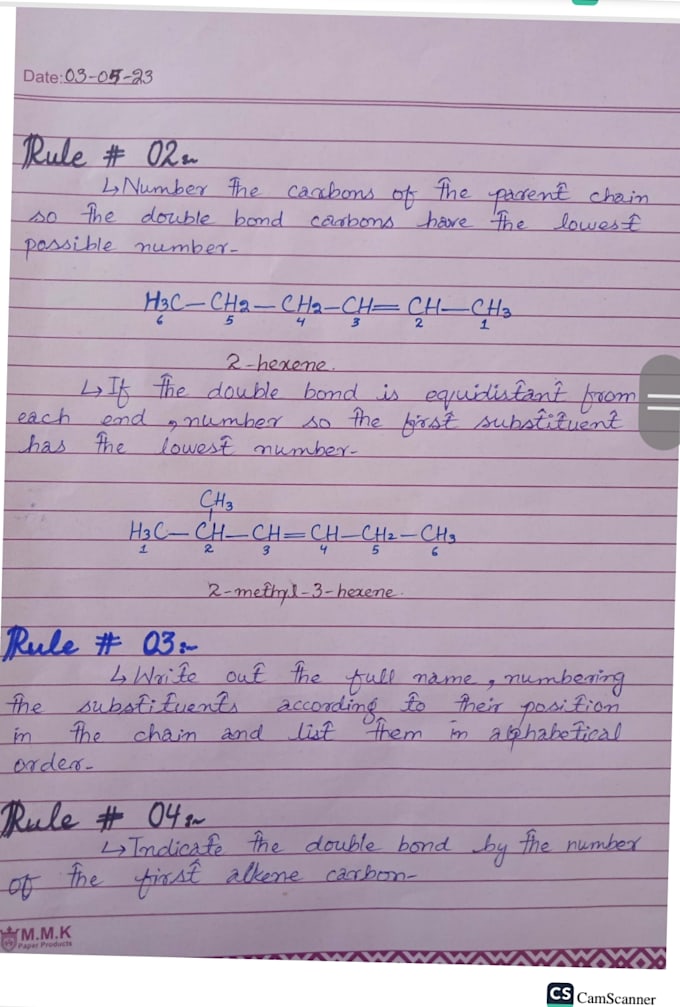 Date:03-05-23
Rule # 02:~
↳Number the carbons of the parent chain
so the double bond carbons have the lowest
possible number-
H3C—CH2—CH2—CH=CH—CH3
6 5 4 3 2 1
2-hexene.
↳If the double bond is equidistant from
each end, number so the first substituent
has the lowest number-
CH3
H3C—CH—CH=CH—CH2—CH3
1 2 3 4 5 6
2-methyl-3-hexene.
Rule # 03:~
↳Write out the full name, numbering
the substituents according to their position
in the chain and list them in alphabetical
order-
Rule # 04:~
↳Indicate the double bond by the number
of the first alkene carbon-
M.M.K
Paper Products
CS CamScanner